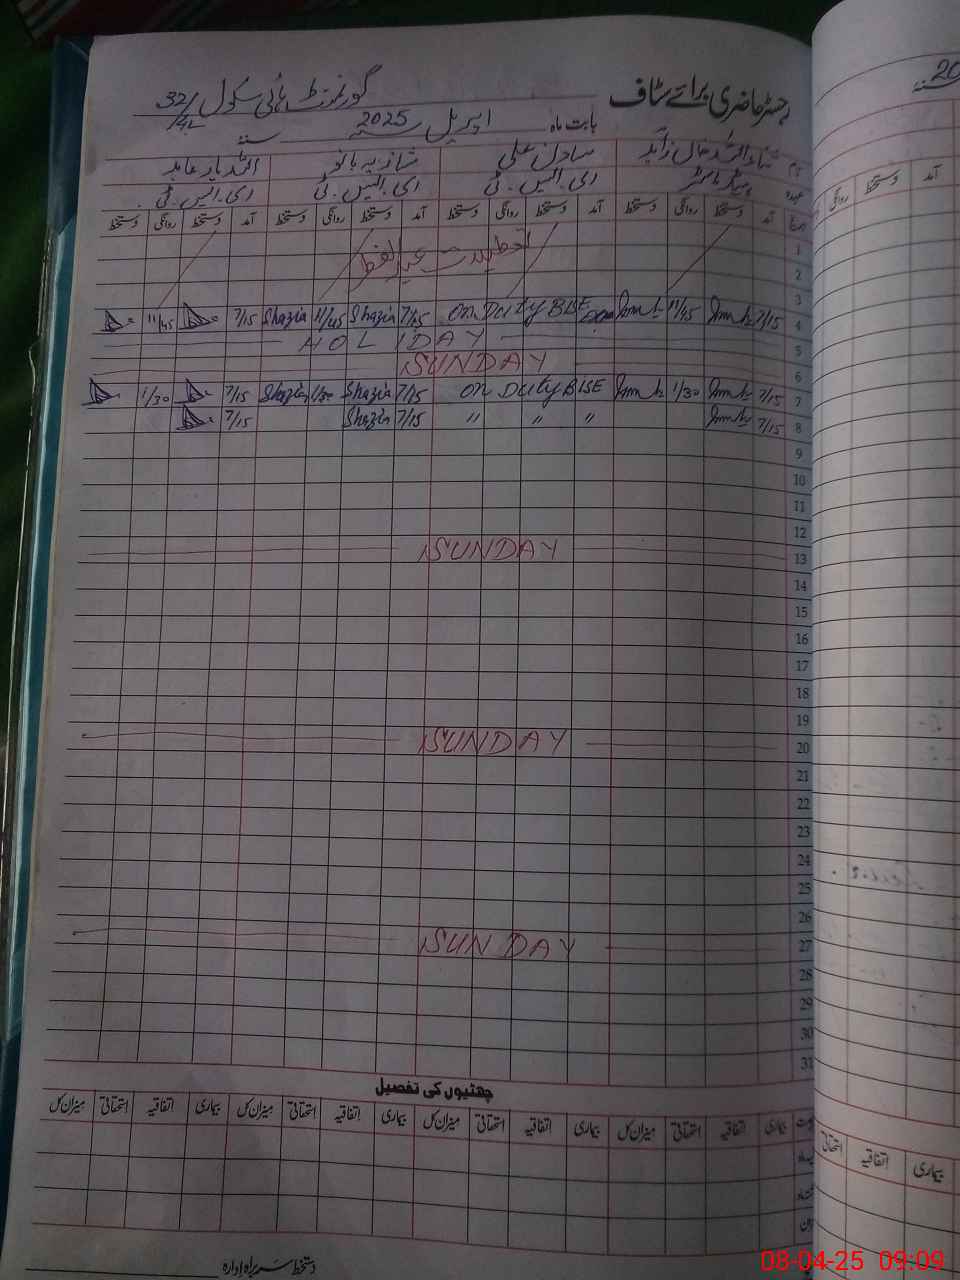 رجسٹر حاضری برائے سٹاف گورنمنٹ ہائی سکول 32/4L
بابت ماہ اپریل 2025 سنہ
نام شازیہ بانو
عہدہ ہیڈ ماسٹر ای.ایس.ٹی ای.ایس.ٹی ای.ایس.ٹی
تاریخ آمد دستخط روانگی دستخط آمد دستخط روانگی دستخط آمد دستخط روانگی دستخط آمد دستخط روانگی دستخط
1 تعطیلات عید الفطر
2
3
11/45 7/15 Shazia 11/45 Shazia 7/15 On Duty BISE 11/45 7/15 4
HOLIDAY 5
SUNDAY 6
1/30 7/15 Shazia 1/30 Shazia 7/15 On Duty BISE 1/30 7/15 7
7/15 Shazia 7/15 " " " 7/15 8
9
10
11
12
SUNDAY 13
14
15
16
17
18
19
SUNDAY 20
21
22
23
24
25
26
SUNDAY 27
28
29
30
31
چھٹیوں کی تفصیل
بیماری اتفاقیہ استحقاقی میزان کل بیماری اتفاقیہ استحقاقی میزان کل بیماری اتفاقیہ استحقاقی میزان کل بیماری اتفاقیہ استحقاقی میزان کل
دستخط سربراہ ادارہ
20
آمد دستخط روانگی
بیماری اتفاقیہ استحقاقی
08-04-25 09:09